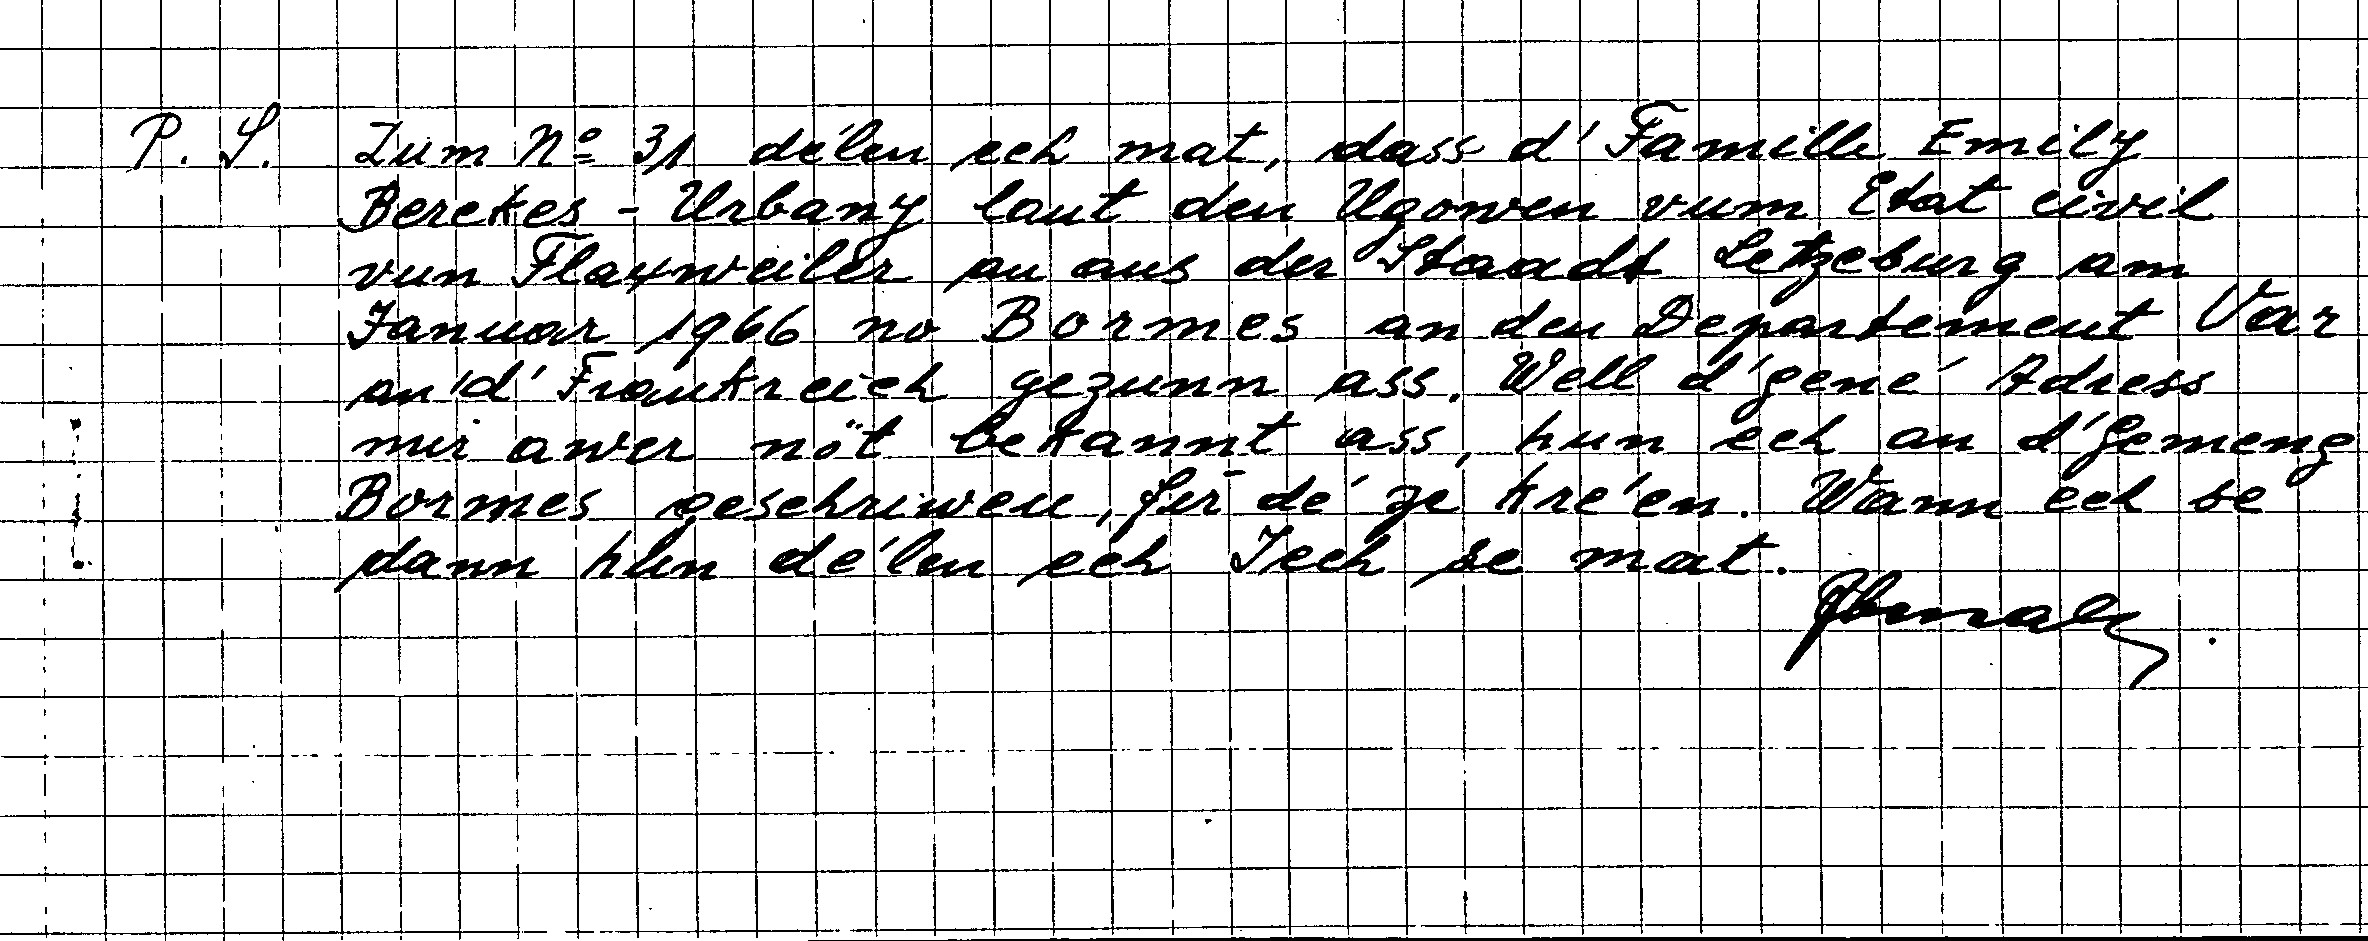 P. S. Zum No 31 délen ech mat, dass d' Famille Emily
Berckes - Urbany laut den Ugowen vum Etat civil
vun Flaxweiler an aus der Staadt Letzeburg am
Januar 1966 no Bormes an den Departement Var
an 'd' Frankreich gezunn ass. Well d' gené Adress
mir awer nöt bekannt ass, hun ech an d' Gemeng
Bormes geschriwen, fir dé ze kréen. Wann ech se
dann hun délen ech Iech se mat.